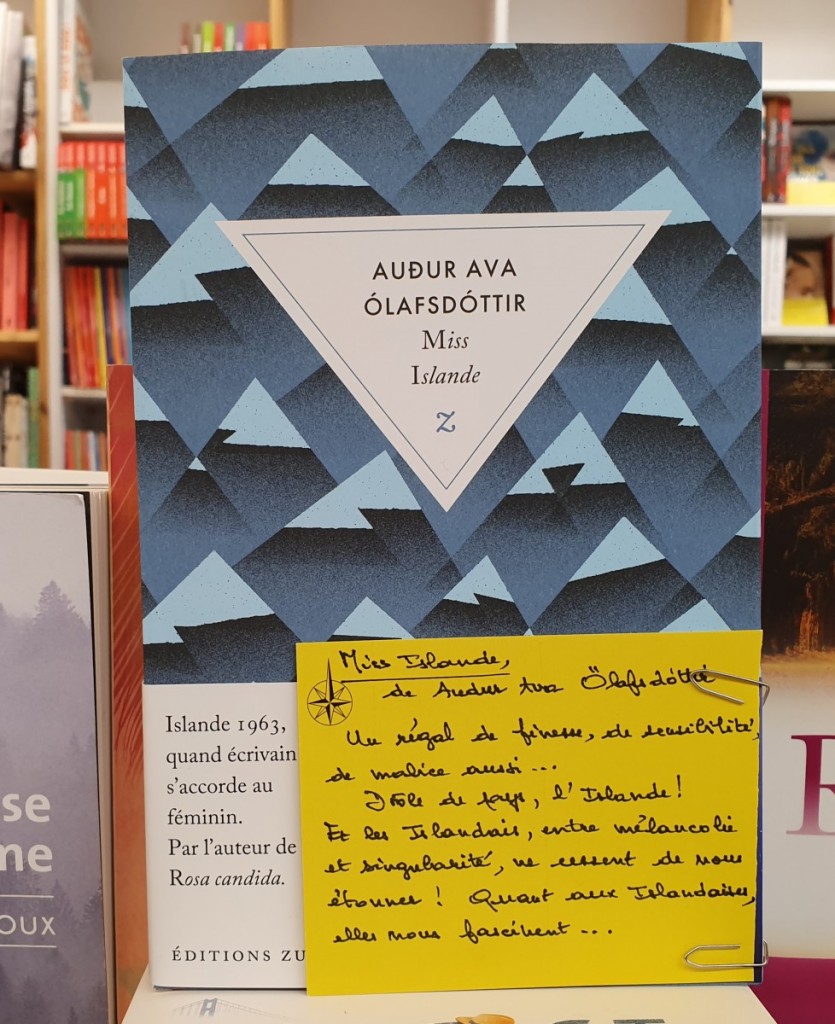 AUÐUR AVA
ÓLAFSDÓTTIR
Miss
Islande
Z
Islande 1963,
quand écrivain
s'accorde au
féminin.
Par l'auteur de
Rosa candida.
ÉDITIONS ZU
Miss Islande,
de Audur Ava Ölafsdóttir
Un régal de finesse, de sensibilité,
de malice aussi...
Drôle de pays, l'Islande!
Et les Islandais, entre mélancolie
et singularité, ne cessent de nous
étonner! Quant aux Islandaises,
elles nous fascinent...
se
me
OUX
R